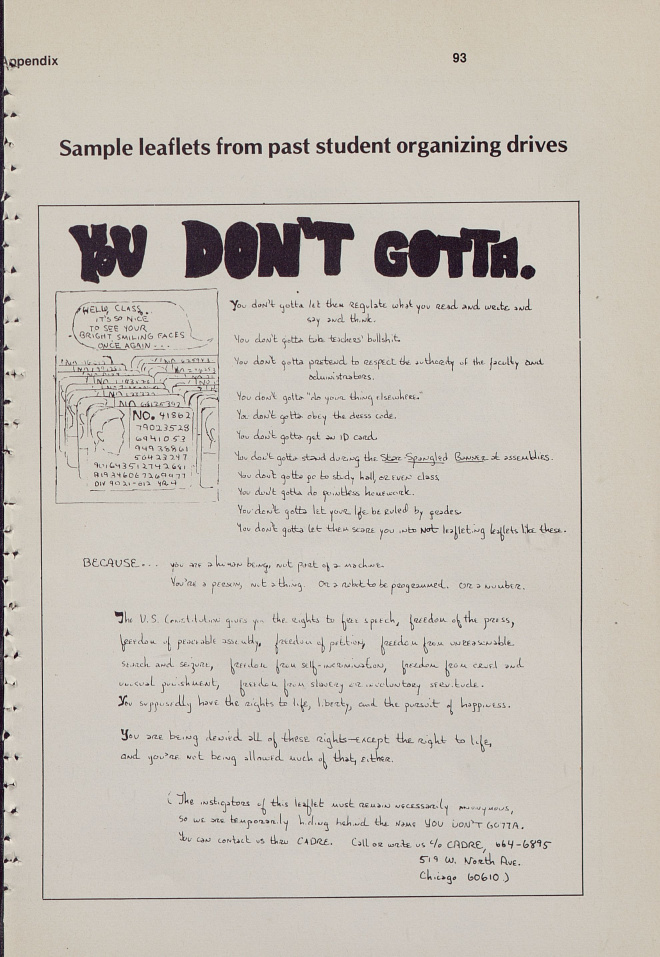 Appendix
93
Sample leaflets from past student organizing drives
YOU DON'T GOTTA.
HELLO, CLASS...
IT'S SO NICE
TO SEE YOUR
BRIGHT SMILING FACES
ONCE AGAIN...
NO. 41862
79023528
6941053
94938861
56423247
DIV 9021-012 YR 4
You don't gotta let them regulate what you read and write and
say and think.
You don't gotta take teachers' bullshit.
You don't gotta pretend to respect the authority of the faculty and
administrators.
You don't gotta "do your thing elsewhere."
You don't gotta obey the dress code.
You don't gotta get an ID card.
You don't gotta stand during the Star Spangled Banner at assemblies.
You don't gotta go to study hall, or even class.
You don't gotta do pointless homework.
You don't gotta let your life be ruled by grades.
You don't gotta let them scare you into NOT leafleting leaflets like these.
BECAUSE... you are a human being, not part of a machine.
You're a person, not a thing. Or a robot to be programmed. Or a number.
The U.S. Constitution gives you the rights to free speech, freedom of the press,
freedom of peaceable assembly, freedom of petition, freedom from unreasonable
search and seizure, freedom from self-incrimination, freedom from cruel and
unusual punishment, freedom from slavery or involuntary servitude.
You supposedly have the rights to life, liberty, and the pursuit of happiness.
You are being denied all of these rights—except the right to life,
and you're not being allowed much of that, either.
(The instigators of this leaflet must remain necessarily anonymous,
so we are temporarily hiding behind the name YOU DON'T GOTTA.
You can contact us thru CADRE. Call or write us c/o CADRE, 664-6895
519 W. North Ave.
Chicago 60610)